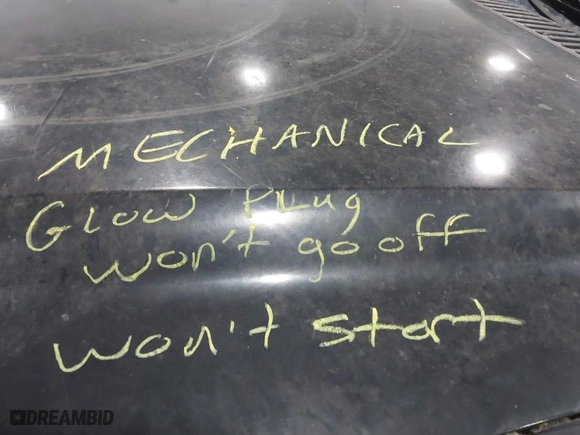 MECHANICAL
Glow Plug
won't go off
won't start
DREAMBID